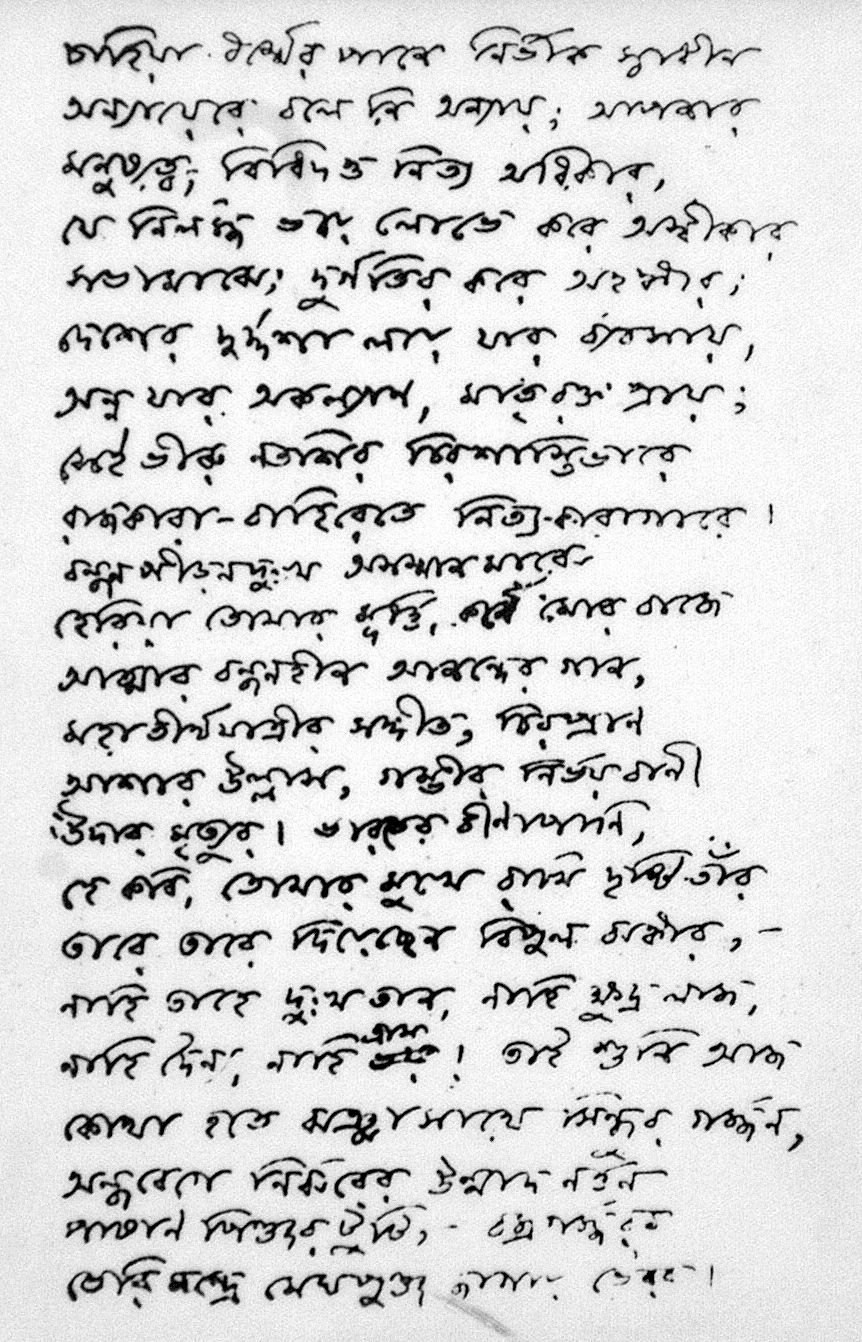 চাহিয়া ধর্ম্মের পানে নির্ভীক স্বাধীন
অন্যায়েরে বলে নি অন্যায়; আপনার
মনুষ্যত্ব, বিধিদত্ত নিত্য অধিকার,
যে নির্লজ্জ ভয়ে লোভে করে অস্বীকার
সভামাঝে; দুর্গতির করে অহঙ্কার;
দেশের দুর্দ্দশা লয়ে যার ব্যবসায়,
অন্ন যার অকল্যাণ, মাতৃরক্ত প্রায়;
সেই ভীরু নতশির চিরশাস্তিভারে
রাজকারা-বাহিরেতে নিত্য-কারাগারে।
বন্ধন পীড়নদুঃখ অসম্মান মাঝে
হেরিয়া তোমার মূর্ত্তি, কর্ণে মোর বাজে
আত্মার বন্ধনহীন আনন্দের গান,
মহাতীর্থযাত্রীর সঙ্গীত, চিরপ্রাণ
আশার উল্লাস, গম্ভীর নির্ভয় বাণী
উদার মৃত্যুর। ভারতের বীণাপাণি,
হে কবি, তোমার মুখে রাখি দৃষ্টি তাঁর
তারে তারে দিয়েছেন বিপুল ঝঙ্কার,-
নাহি তাহে দুঃখতান, নাহি ক্ষুদ্র লাজ,
নাহি দৈন্য, নাহি ত্রাস! তাই শুনি আজ
কোথা হতে ঝঞ্ঝাসাথে সিন্ধুর গর্জ্জন,
অন্ধবেগে নির্ঝরের উন্মাদ নর্ত্তন
পাষাণ পিঞ্জর টুটি,- বজ্রগর্জ্জরব
ভেরিমন্দ্রে মেঘপুঞ্জ জাগায় ভৈরব।